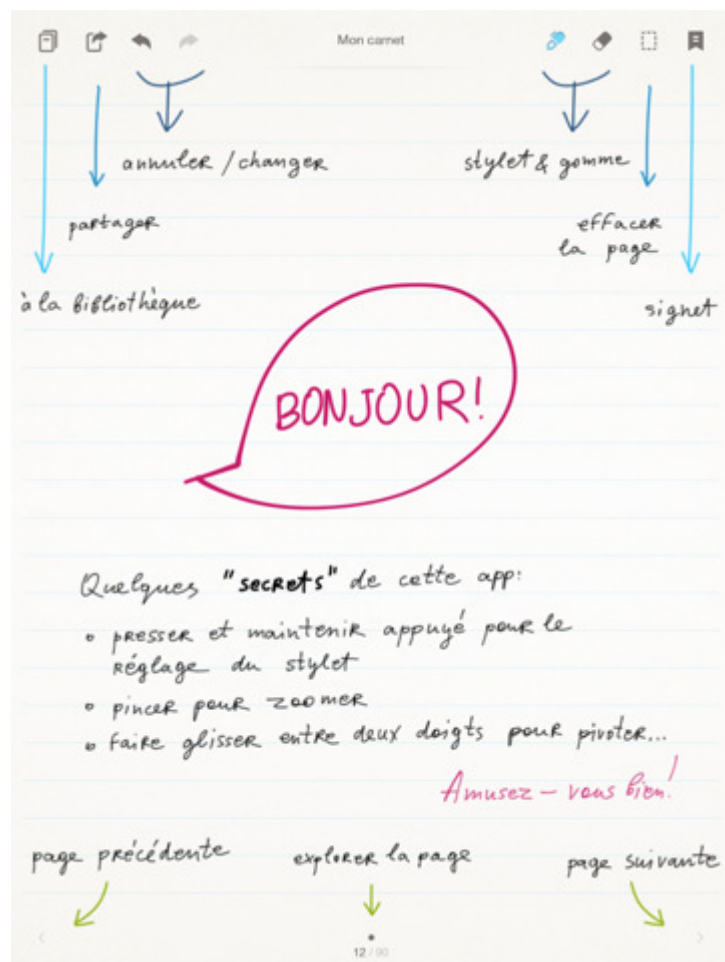 Mon carnet
annuler / changer
stylet & gomme
partager
effacer
la page
à la bibliothèque
signet
BONJOUR!
Quelques "secrets" de cette app:
• presser et maintenir appuyé pour le
réglage du stylet
• pincer pour zoomer
• faire glisser entre deux doigts pour pivoter...
Amusez-vous bien!
page précédente
explorer la page
page suivante
12 / 90